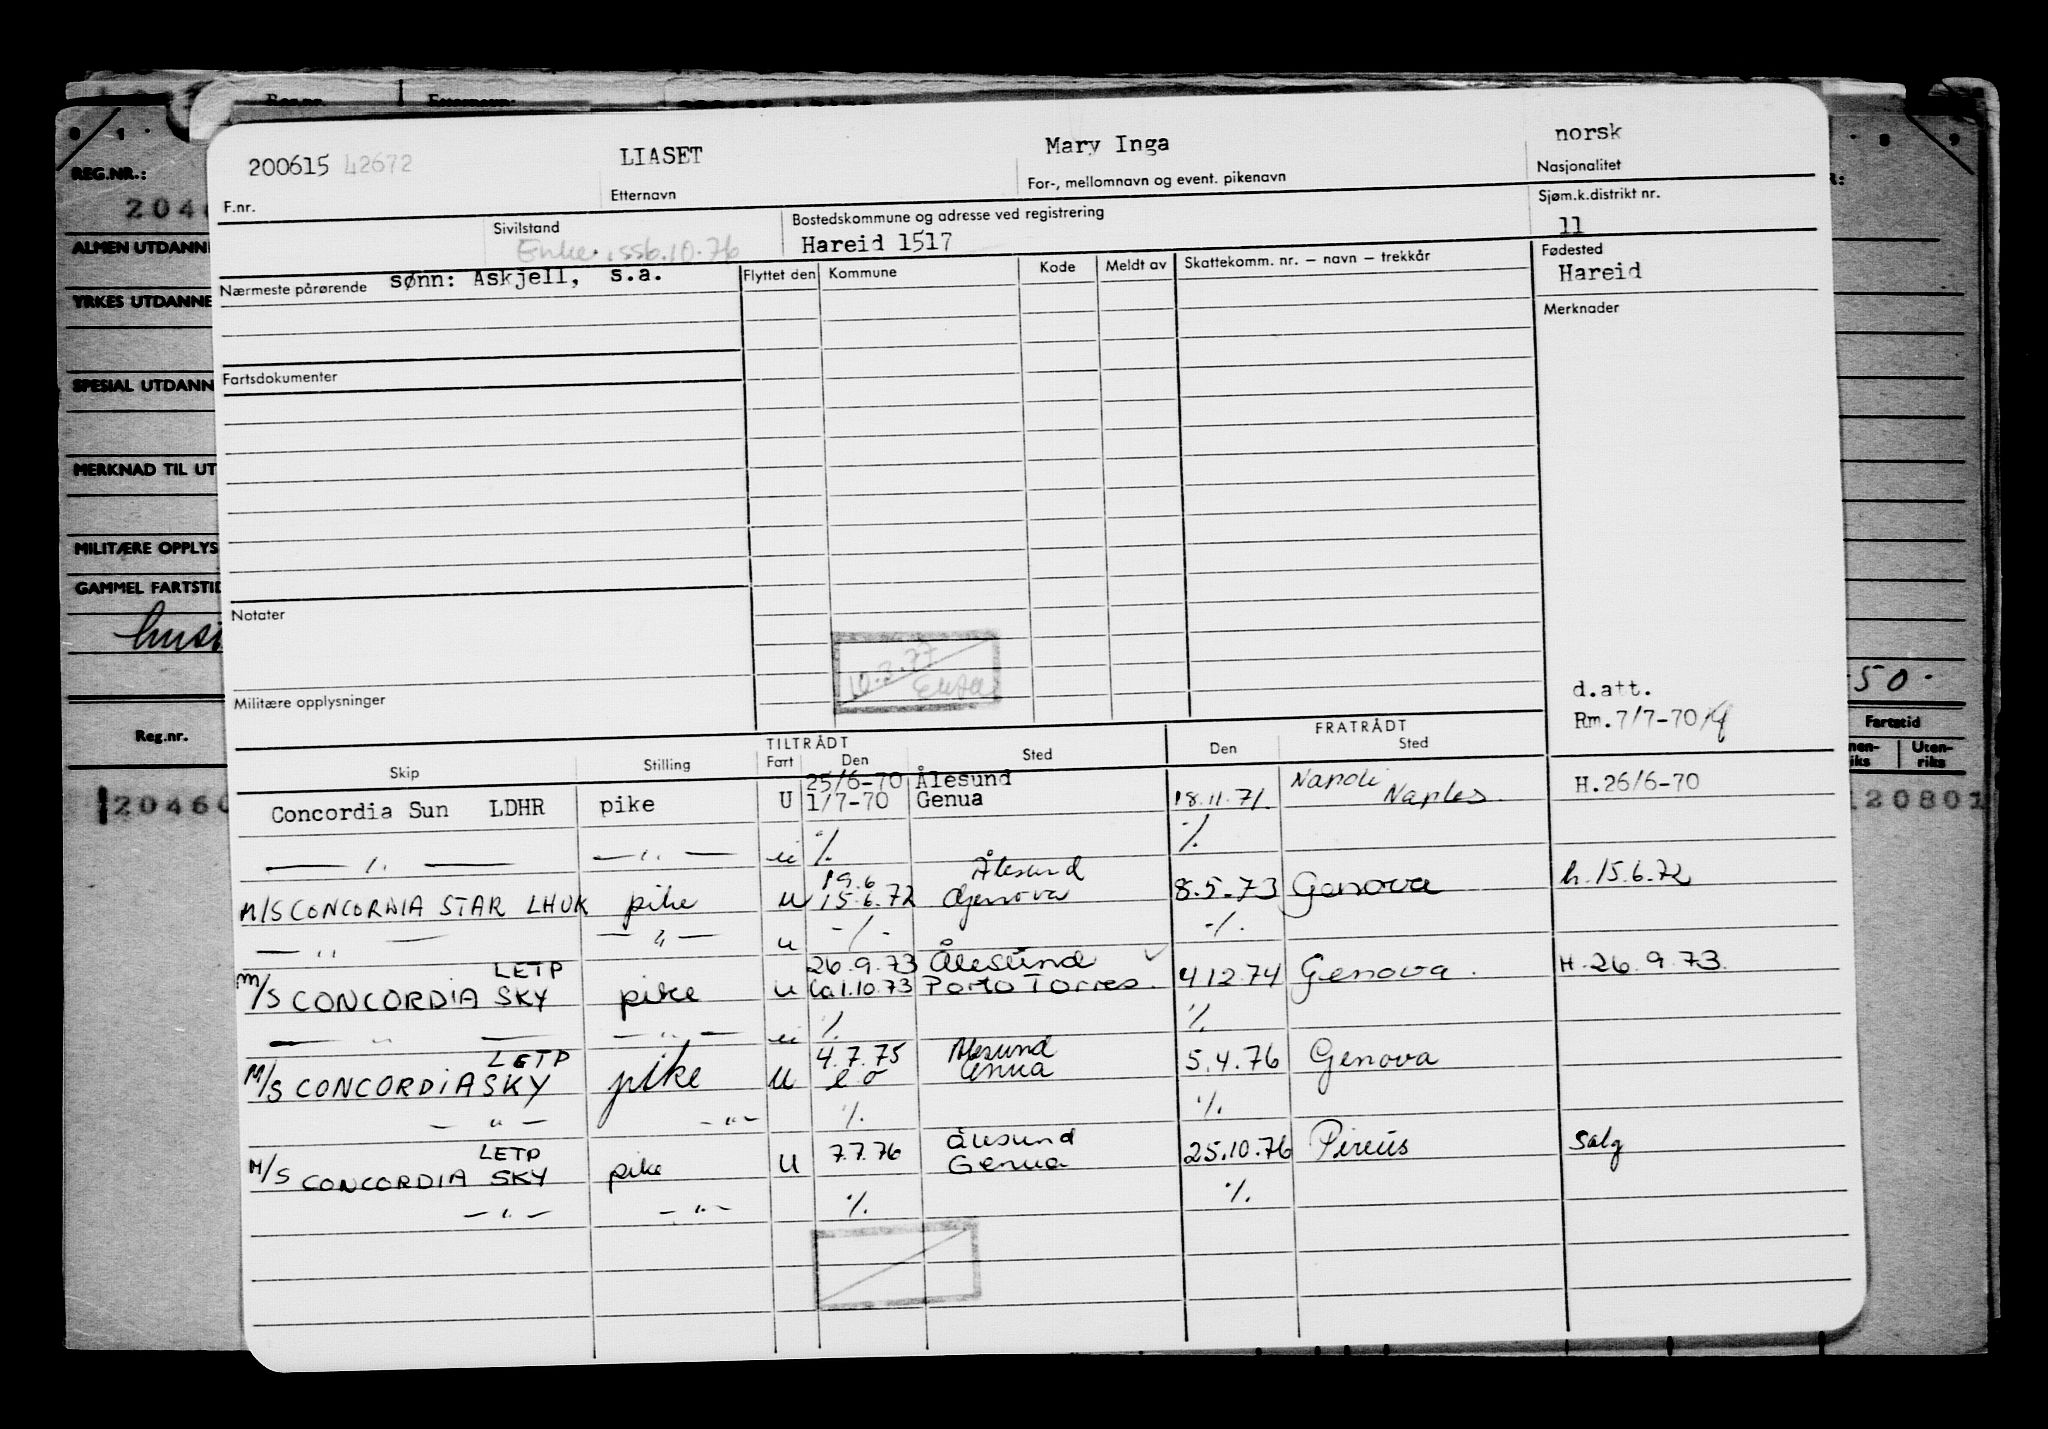 Reg.nr. Etternavn:
REG.NR.:
2046
ALMEN UTDANNE
YRKES UTDANNE
SPESIAL UTDANN
MERKNAD TIL UT
MILITÆRE OPPLYS
GAMMEL FARTSTID
Reg.nr.
20460
200615 42672 LIASET Mary Inga norsk
F.nr. Etternavn For-, mellomnavn og event. pikenavn Nasjonalitet
Sivilstand Bostedskommune og adresse ved registrering Sjøm.k.distrikt nr.
Enke. ssb.10.76 Hareid 1517 11
Nærmeste pårørende sønn: Askjell, s.a. Flyttet den Kommune Kode Meldt av Skattekomm. nr. – navn – trekkår Fødested
Hareid
Merknader
Fartsdokumenter
Notater
Militære opplysninger
d.att.
Rm.7/7-70
TILTRÅDT FRATRÅDT
Skip Stilling Fart Den Sted Den Sted
25/6-70 Ålesund Napoli
Concordia Sun LDHR pike U 1/7-70 Genua 18.11.71. Naples. H.26/6-70
— " — — " — u ./. ./.
19.6 Ålesund
M/S CONCORDIA STAR LHUK pike u 15.6.72 Genova 8.5.73 Genova h.15.6.72
— " — — " — u -/- -/.
LETP 26.9.73 Ålesund
M/S CONCORDIA SKY pike u ca 1.10.73 Porto Torres. 4.12.74 Genova. H.26.9.73.
— " — — " — u ./. ./.
LETP 4.7.75 Ålesund
M/S CONCORDIA SKY pike u Genua 5.4.76 Genova
— " — — " — ./. ./.
LETP Ålesund
M/S CONCORDIA SKY pike U 7.7.76 Genua 25.10.76 Pireus Salg
— " — — " — ./. ./.
50.
Fartstid
Uten-
riks
120801